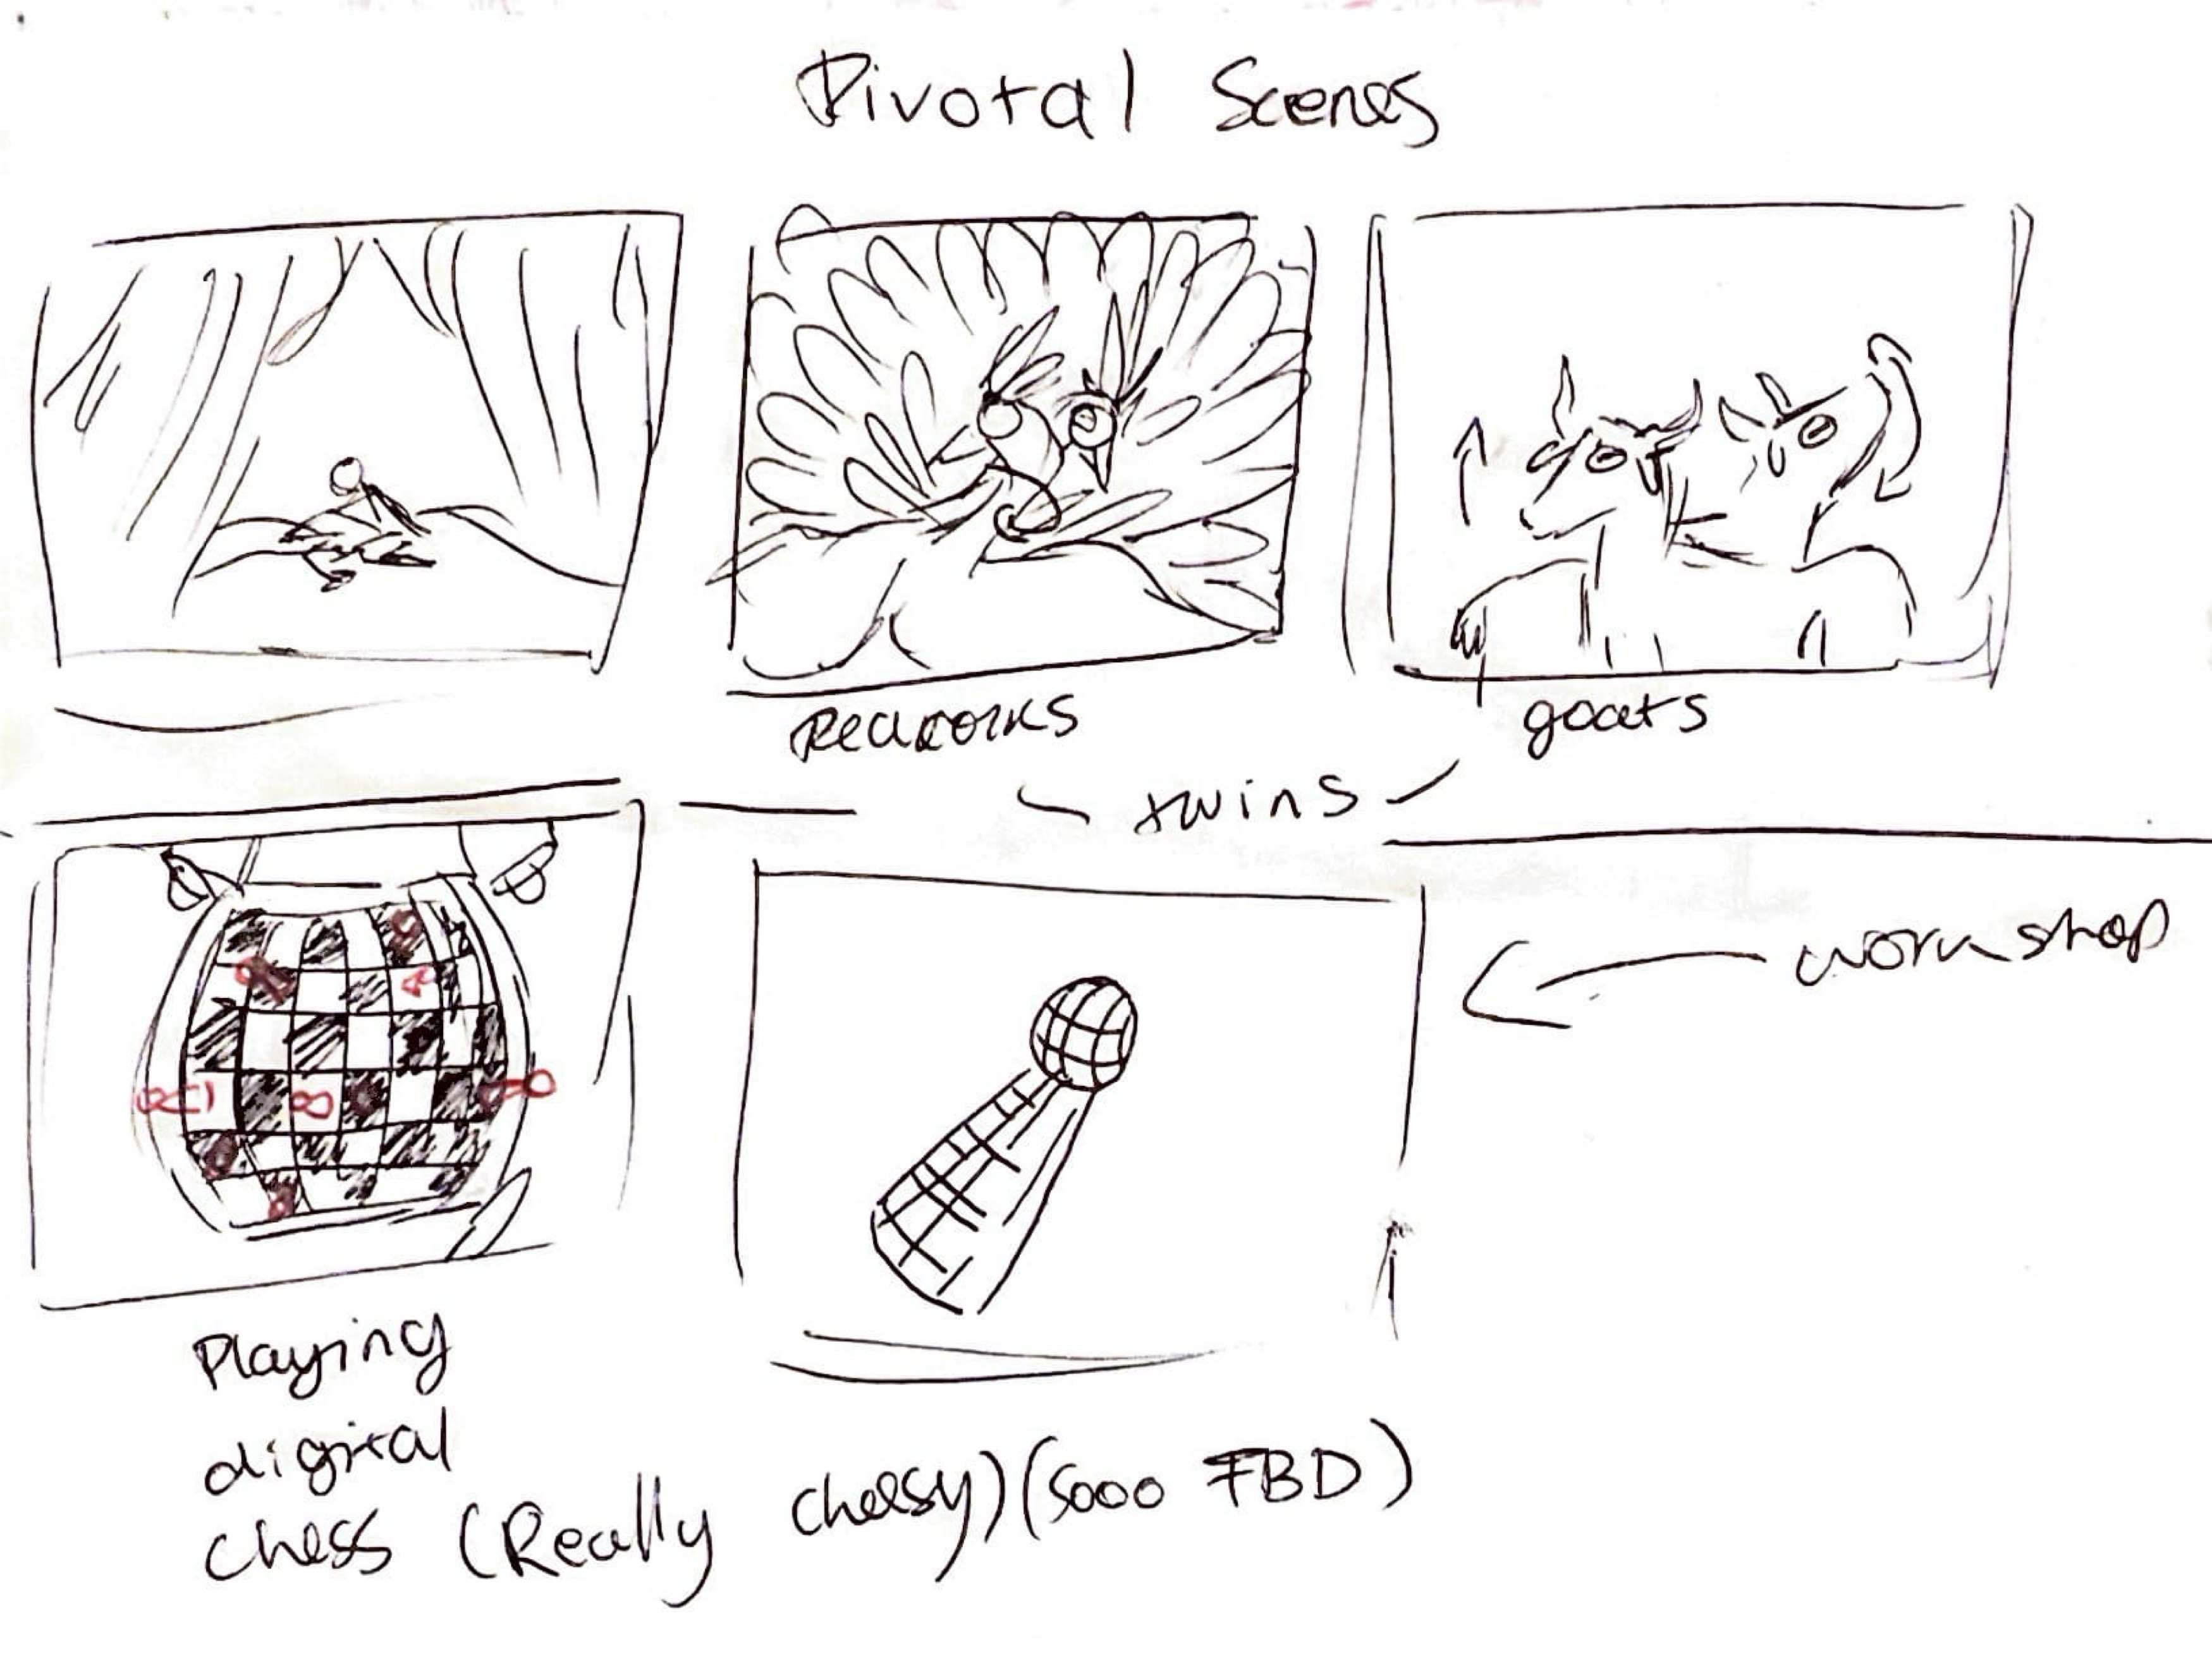 Pivotal Scenes
Peacocks
goats
twins
workshop
Playing
digital
chess (Really cheesy) (Sooo FBD)